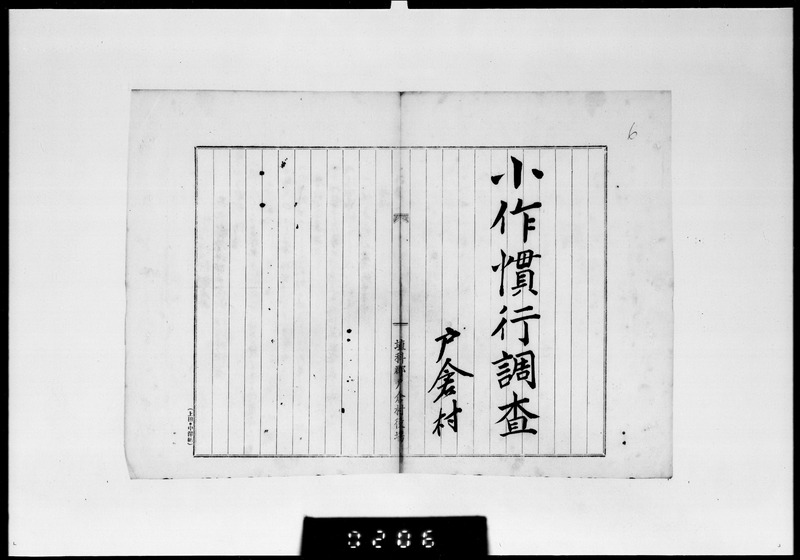 6
小作慣行調査
戸倉村
埴科郡戸倉村役場
0206